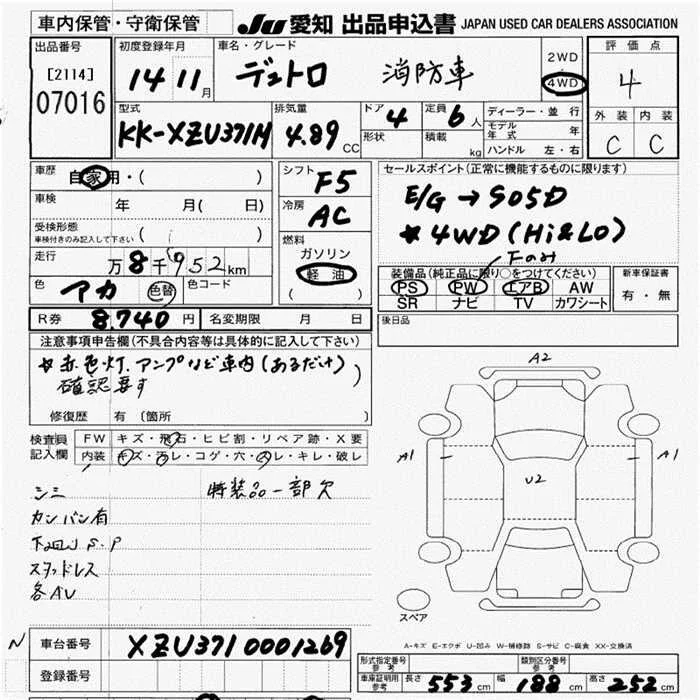 車内保管・守衛保管
JU 愛知 出品申込書 JAPAN USED CAR DEALERS ASSOCIATION
出品番号
[2114]
07016
初度登録年月
14 11月
車名・グレード
デュトロ 消防車
2WD
4WD
評価点
4
外装 内装
C C
型式
KK-XZU371M
排気量
4.89 CC
ドア 4
形状
定員 6人
積載 kg
ディーラー・並行
モデル年式 年
ハンドル 左・右
車歴
自家用・( )
車検 年 月( 日)
受検形態
車検付きのみ記入して下さい ( )
走行
万8千952km
色 アカ 色替 色コード
シフト F5
冷房 AC
燃料
ガソリン
軽油
( )
セールスポイント(正常に機能するものに限ります)
E/G → S05D
* 4WD(Hi&Lo)
Fのみ
装備品(純正品に限り○をつけてください)
PS PW エアB AW
SR ナビ TV カワシート
新車保証書
有・無
R券 8,740円 名変期限 月 日
後日品
注意事項申告欄(不具合内容等は具体的に記入して下さい)
* 赤色灯、アンプなど車内(あるだけ)
確認要す
修復歴 有(箇所 )
検査員
記入欄
FW キズ・飛石・ヒビ割・リペア跡・X要
内装 キズ・汚レ・コゲ・穴・スレ・キレ・破レ
シミ 特装品一部欠
カンバン有
下回り S・P
スタッドレス
各AU
A2
A1 U2 A1
スペア
A-キズ E-エクボ U-凹み W-補修跡 S-サビ C-腐食 XX-交換済
N
車台番号 XZU371 0001269
登録番号
形式指定番号 参考
類別区分番号 参考
車庫証明用 参考 長さ 553cm 幅 188cm 高さ 252cm